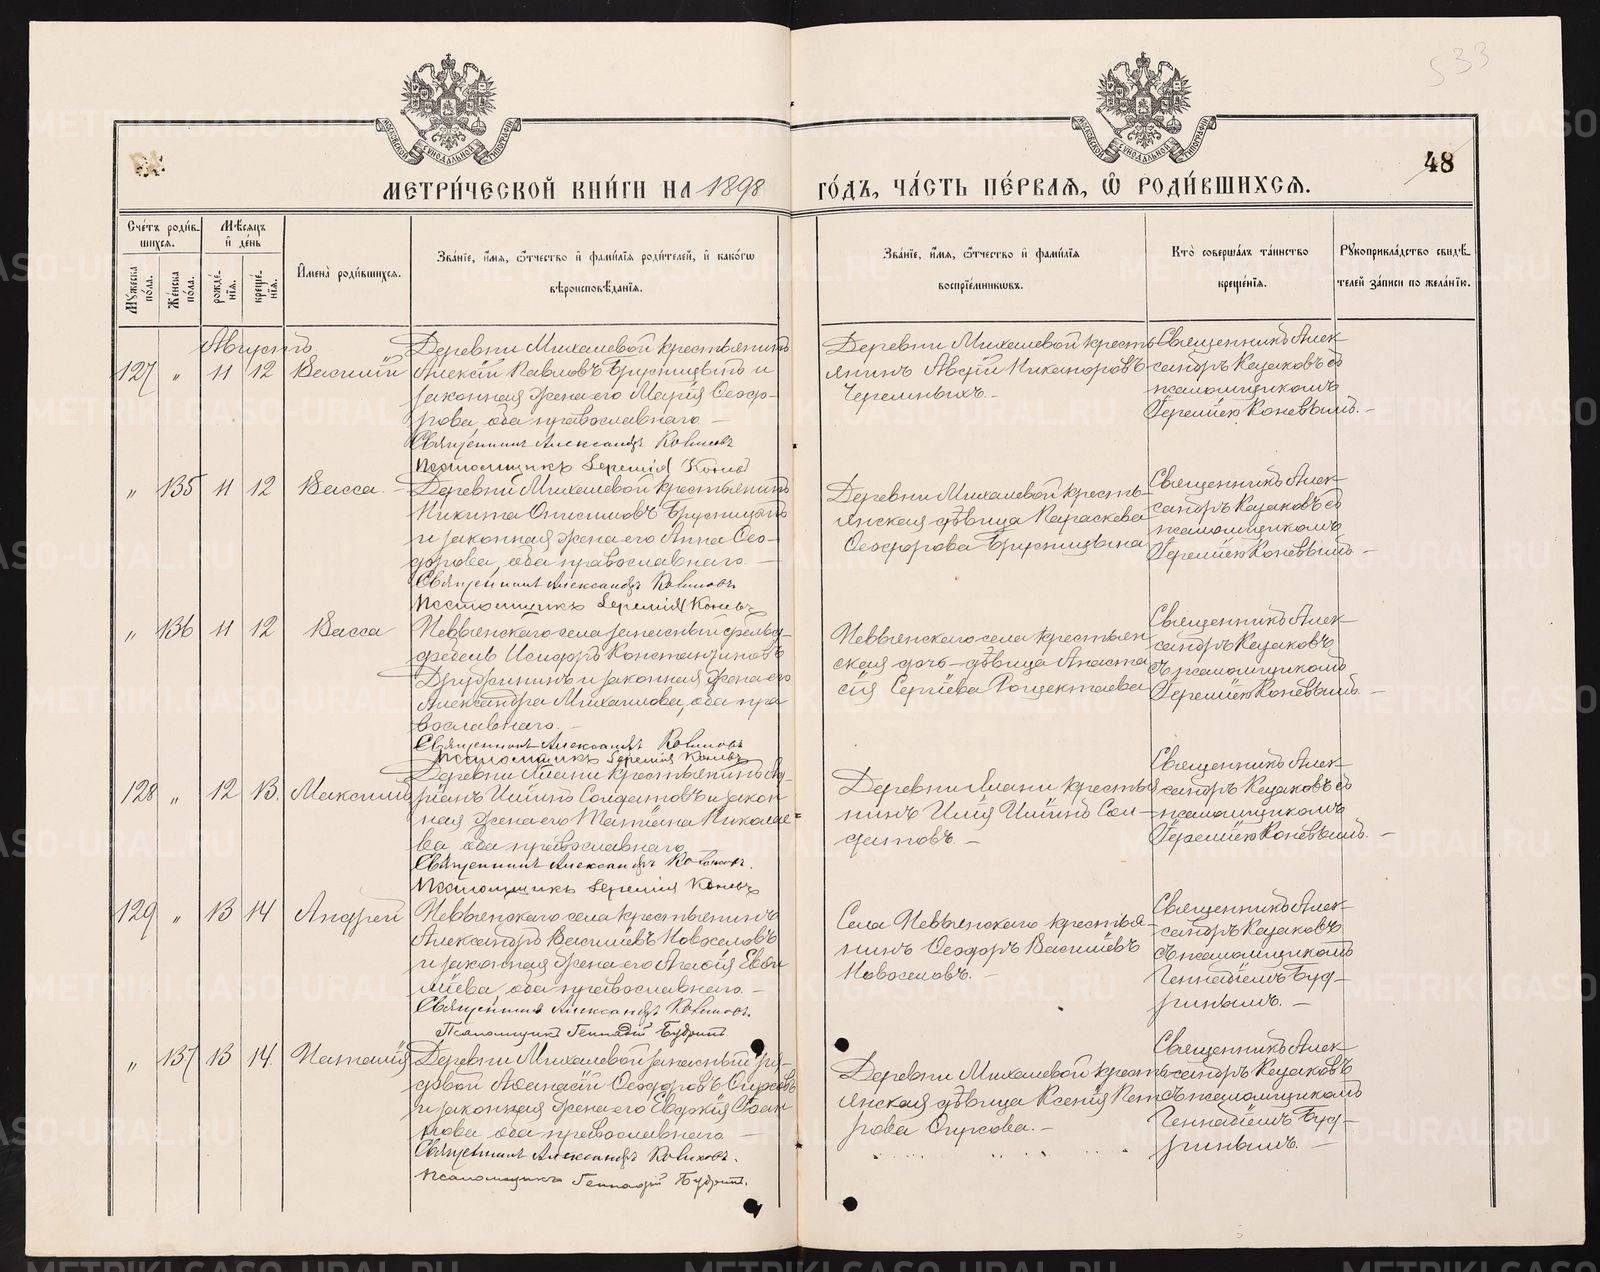 533
48
МЕТРИ́ЧЕСКОЙ КНИ́ГИ НА 1898 ГО́ДЪ, ЧА́СТЬ ПЕ́РВАЯ, Ѡ҆ РОДИ́ВШИХСЯ.
МОСКОВСКОЙ СѴНОДАЛЬНОЙ ТИПОГРАФІИ
МОСКОВСКОЙ СѴНОДАЛЬНОЙ ТИПОГРАФІИ
Сче́тъ роди́в-
шихся.
Му́жеска по́ла.
Же́нска по́ла.
Мѣ́сяцъ
и҆ де́нь
рожде́-
нїя.
креще́-
нїя.
И҆мена̀ роди́вшихся.
Зва́нїе, и҆́мя, ѻ҆́тчество и҆ фами́лїя роди́телей, и҆ како́гѡ
вѣроисповѣ́данїя.
Зва́нїе, и҆́мя, ѻ҆́тчество и҆ фами́лїя
воспрїе́мникѡвъ.
Кто̀ соверша́лъ та́инство
креще́нїя.
Рꙋкоприкла́дство свидѣ́-
телей за́писи по жела́нїю.
Августъ
127 " 11 12 Василій
Деревни Михалевой крестьянинъ
Алексій Павловъ Брусницынъ и
законная жена его Марія Ѳеодо-
рова, оба православнаго. —
Священникъ Александръ Казаковъ
Псаломщикъ Іеремія Коневъ
Деревни Михалевой кресть-
янинъ Авдій Никаноровъ
Черемныхъ. —
Священникъ Алек-
сандръ Казаковъ съ
псаломщикомъ
Іереміею Коневымъ. —
" 135 11 12 Васса. —
Деревни Михалевой крестьянинъ
Никита Онисимовъ Брусницынъ
и законная жена его Анна Ѳео-
дорова, оба православнаго. —
Священникъ Александръ Казаковъ
Псаломщикъ Іеремія Коневъ
Деревни Михалевой кресть-
янская дѣвица Параскева
Ѳеодорова Брусницына
Священникъ Алек-
сандръ Казаковъ съ
псаломщикомъ
Іереміею Коневымъ —
" 136 11 12 Васса
Невьянскаго села запасный фельд-
фебель Исидоръ Константиновъ
Дружининъ и законная жена его
Александра Михаилова, оба пра
вославнаго. —
Священникъ Александръ Казаковъ
Псаломщикъ Іеремія Коневъ
Невьянскаго села крестьян
ская дочь-дѣвица Анаста
сія Сергіева Рощектаева
Священникъ Алек-
сандръ Казаковъ
съ псаломщикомъ
Іереміею Коневымъ. —
128 " 12 13. Максимъ
Деревни Ялани крестьянинъ Ад-
ріанъ Иліинъ Солдатовъ и закон
ная жена его Татіана Николае-
ва оба православнаго
Священникъ Александръ Казаковъ.
Псаломщикъ Іеремія Коневъ
Деревни Ялани крестья
нинъ Илія Иліинъ Сол-
датовъ. —
Священникъ Алек-
сандръ Казаковъ съ
псаломщикомъ
Іереміею Коневымъ. —
129 " 13 14 Андрей
Невьянскаго села крестьянинъ
Александръ Василіевъ Новоселовъ
и законная жена его Агаѳія
православнаго. —
Священникъ Александръ Казаковъ.
Псаломщикъ Геннадій Будринъ
Села Невьянскаго крестья-
нинъ Ѳеодоръ Василіевъ
Новоселовъ. —
Священникъ Алек-
сандръ Казаковъ
съ псаломщикомъ
Геннадіемъ Буд-
ринымъ. —
" 137 13 14. Наталія
Деревни Михалевой запасный ря-
довой Аѳанасій Ѳеодоровъ Огурсовъ
и законная жена его Евдокія Іоан
нова оба православнаго —
Священникъ Александръ Казаковъ.
Псаломщикъ Геннадій Будринъ.
Деревни Михалевой кресть-
янская дѣвица Ксенія Пет
рова Огурсова. —
Священникъ Алек-
сандръ Казаковъ
съ псаломщикомъ
Геннадіемъ Буд-
ринымъ. —
METRIKI.GASO-URAL.RU